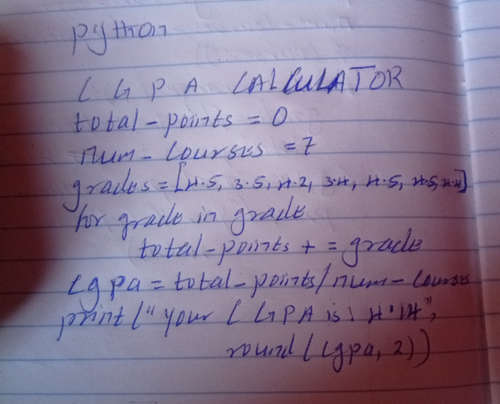 python
CGPA CALCULATOR
total-points = 0
num-courses = 7
grades = [4.5, 3.5, 4.2, 3.4, 4.5, 4.5, 4.4]
for grade in grade
total-points + = grade
cgpa = total-points/num-courses
print("your CGPA is: 4.14",
round(cgpa, 2))